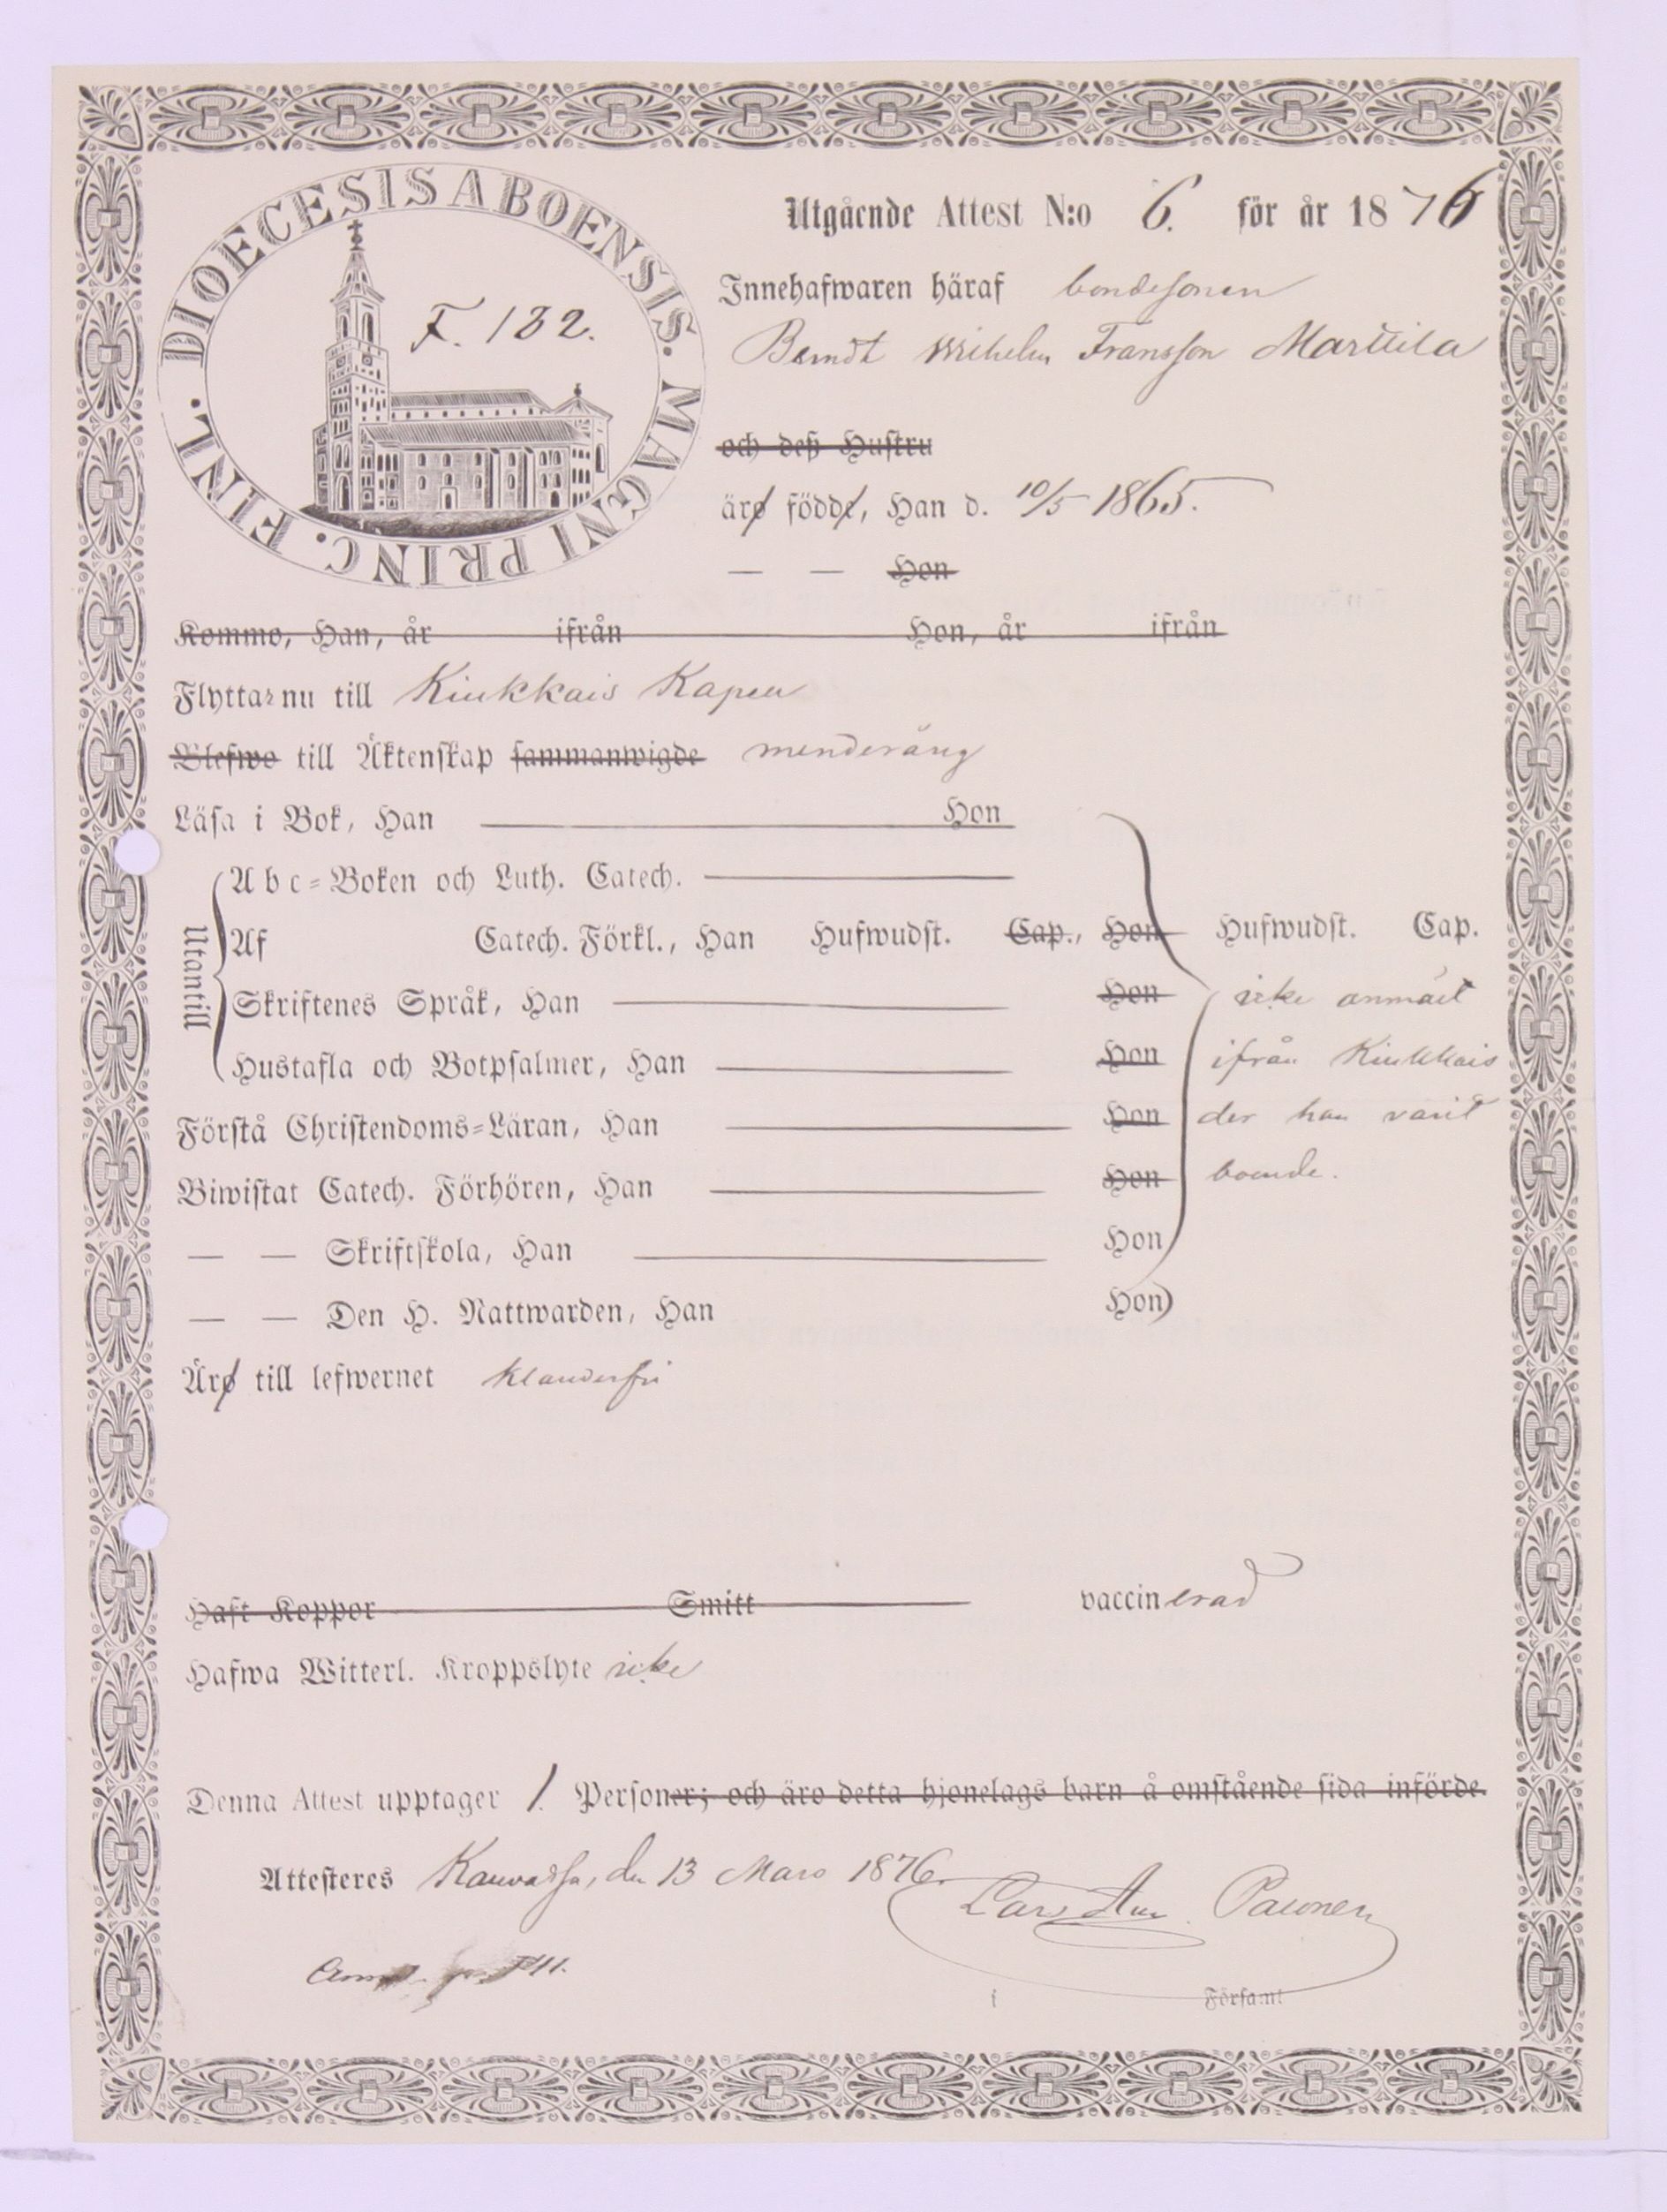 DIOECESIS ABOENSIS. MAGNI PRINC. FINL.
F. 182.
Utgående Attest N:o 6. för år 1876
Innehafwaren häraf bondesonen
Berndt Wilhelm Fransson Marttila
och deß Hustru
äro födde, Han d. 10/5 1865.
— — Hon
Kommo, Han, år ifrån Hon, år ifrån
Flyttar nu till Kiukkais Kapell
Blefwo till Äktenskap sammanwigde minderårig
Läsa i Bok, Han Hon
Utantill
Abc-Boken och Luth. Catech.
Af Catech. Förkl., Han Hufwudst. Cap., Hon Hufwudst. Cap.
Skriftenes Språk, Han Hon icke anmält
Hustafla och Botpsalmer, Han Hon ifrån Kiukkais
Förstå Christendoms-Läran, Han Hon der han varit
Biwistat Catech. Förhören, Han Hon boende.
— — Skriftskola, Han Hon
— — Den H. Nattwarden, Han Hon
Äro till lefwernet klanderfri
Haft Koppor Smitt vaccinerad
Hafwa Witterl. Kroppslyte icke
Denna Attest upptager 1. Personer; och äro detta hjonelags barn å omstående sida införde.
Attesteres Kauvatsa, den 13 Mars 1876.
Lars Paunen
i Församl